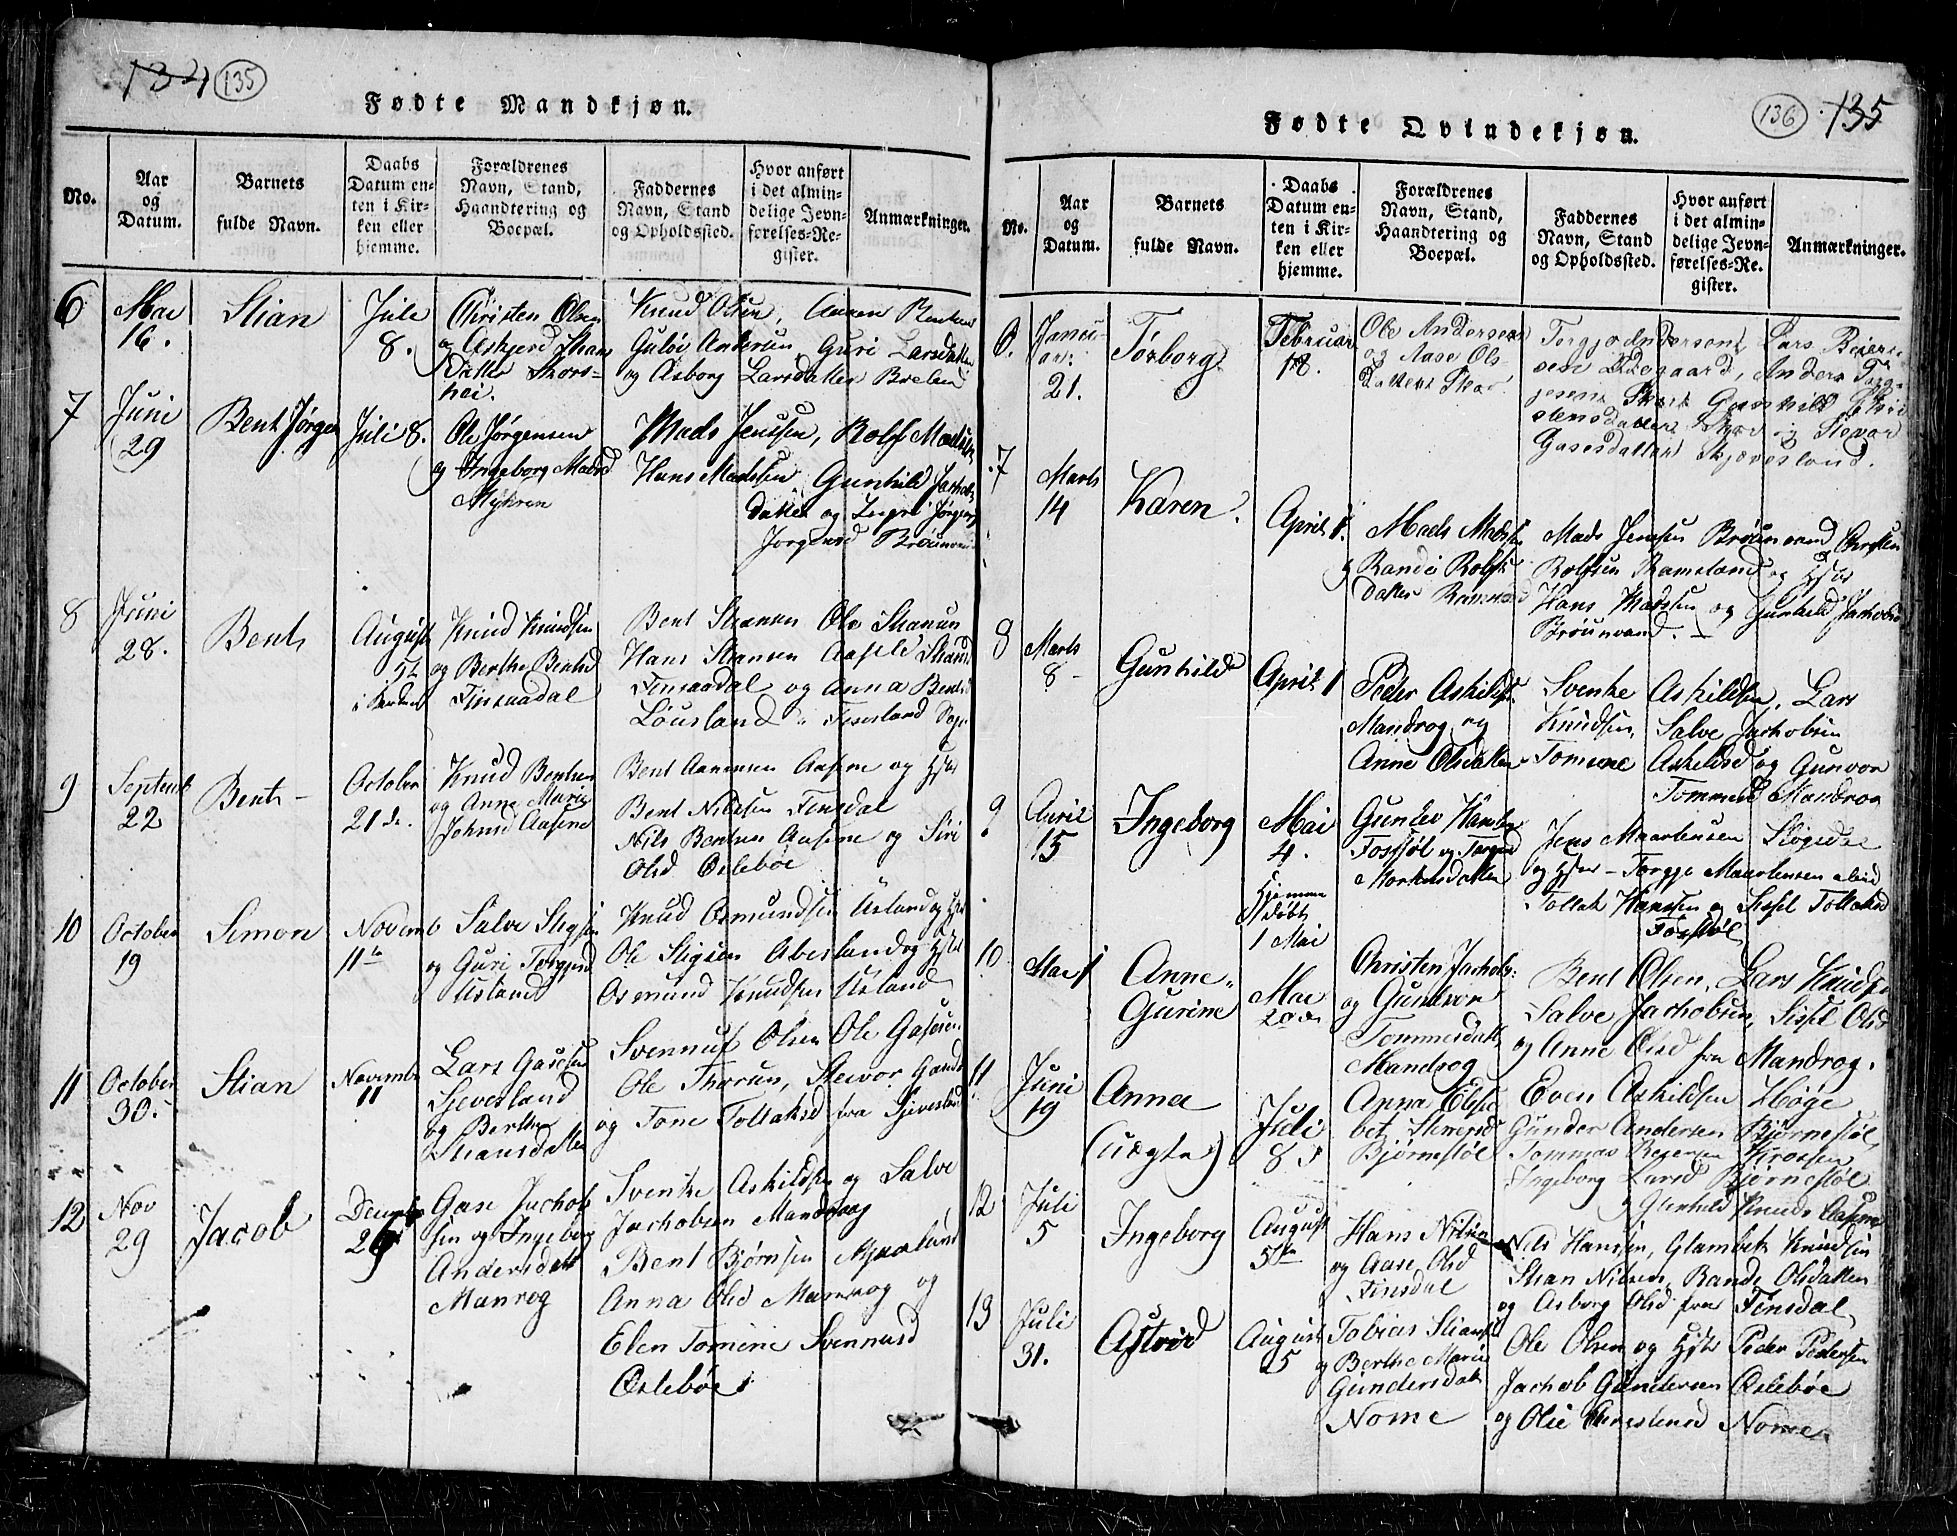 134 135
Fødte Mandkjøn.
No.
Aar og Datum.
Barnets fulde Navn.
Daabs Datum enten i Kirken eller hjemme.
Forældrenes Navn, Stand, Haandtering og Boepæl.
Faddernes Navn, Stand og Opholdssted.
Hvor anført i det almindelige Jevnførelses-Register.
Anmærkninger.
6
Mai
16.
Stian
Juli
8.
Christen Olsen
og Askjerd Stians
Datter
hei.
Knud Olsen,
Guloi Andersen, Guri Larsdatter
og Asborg Larsdatter
7
Juni
29
Bent Jørgen
Juli 8.
Ole Jørgensen
og Ingeborg Madsd
Myhren
Mads Jenssen, Rolf Madsen
Hans Madssen Gunhild Jachobs
datter og Ingri Jørgens
Jørgensd Brøunvand
8
Juni
28.
Bent
August
5te
i Kirken
Knud Knudsen
og Berthe Bentsd
Finsaadal
Bent Stiansen Ole Stiansen
Hans Stiansen Aasele Stiansd
Finsaadal og Anna Bentsd
Løusland i Finsland Sogn
9
Septemb
22
Bent
October
21de.
Knud Bentsen
og Anne Marie
Johnsd Aasene
Bent Aanensen Aasene og Hstr
Bent Nilssen Finsdal
Nils Bentsen Aasene og Siri
Olsd Oslebøe
10
October
19
Simon
Novemb
11te
Salve Stigsen
og Guri Torgjersd
Usland
Knud Osmundsen Usland og Hstr
Ole Stigsen Abesland og Hstr
Osmund Knudsen Usland
11
October
30.
Stian
Novemb
11
Lars Gasesen
Sjevesland
og Berthe
Stiansdatter
Svennuf Olsen Ole Gasesen
Ole Steivor
og Tone Tollaksd fra Sjevesland
12
Nov
29
Jacob
Decemb
26
Gase Jachob
sen og Ingeborg
Andersdatt
Manrog
Svenke Askildsen og Salve
Jachobsen Mandrog
Bent Bjørnsen
Anna Olsd Manrog og
Elen Tomine Svennusd
Oslebøe
136 135
Fødte Qvindekjøn.
No.
Aar og Datum.
Barnets fulde Navn.
Daabs Datum enten i Kirken eller hjemme.
Forældrenes Navn, Stand, Haandtering og Boepæl.
Faddernes Navn, Stand og Opholdssted.
Hvor anført i det almindelige Jevnførelses-Re-gister.
Anmærkninger.
6.
Janu-
ar:
21.
Torborg
Februar
18.
Ole Andersen
og Aase Ols-
Datter Skar
Torgje Andersen, Lars Reiers-
sen Ødegaard, Anders Torg-
jesen Skar Gunhild Chri
stensdatter Skar og Stevor
Gasesdatter Skjævesland.
7
Marts
14
Karen.
April 1.
Mads Madssen
og Randi Rolfs
datter
Mads Jenssen Brøunvand Christen
Rolfsen Ramsland og Hstr
Hans Madssen og Gunhild Jachobsd
Brøunvand.
8
Marts
8
Gunhild
April 1
Peder Askilds
Mandrog og
Anne Olsdatter
Svenke Askildsen, Lars
Knudsen, Salve Jachobsen
Tomine Askildsd og Gunvor
Tommesd Mandrog
9
April
15
Ingeborg
Mai
4.
Hjemme
Døbt
1 Mai
Gunder Hans
Fosstøl og
Mortensdatter
Jens Maartensen Høgedal
og Hstr - Torgje Maartensen
Tollak Hanssen og Sissel Tollaksd
Fosstøl
10
Mai 1
Anne
Gurine
Mai
20de
Christen Jachobs:
og Gundvor
Tommesdatt
Mandrog
Bent Olsen, Lars Knudsen
Salve Jachobsen, Sissel Olsd
og Anne Olsd fra Mandrog.
11
Juni
19
Anna
(uægte)
Juli
8de
Anna Elisa
bet
Bjørnestøl
Even Askildsen Høge
Gunder Andersen Bjørnestøl
Tommas Reiersen Krossen
Ingeborg Larsd Bjørnestøl
og Gunhild Knuds Aasene
12
Juli
5
Ingeborg
August
5te
Hans Nilsen
og Aase Olsd
Finsdal
Nils Hansen, Glambek Knudsen
Stian Nilsen, Rande Olsdatter
og Asborg Olsd fra Finsdal
13
Juli
31.
Astrid
August
5
Tobias Stians
og Berthe Marie
Gundersdatt
Nome
Ole Olsen og Hstr Peder Pedersen
Jachob Gundersen Oslebøe
og Olie Christensd Nome.